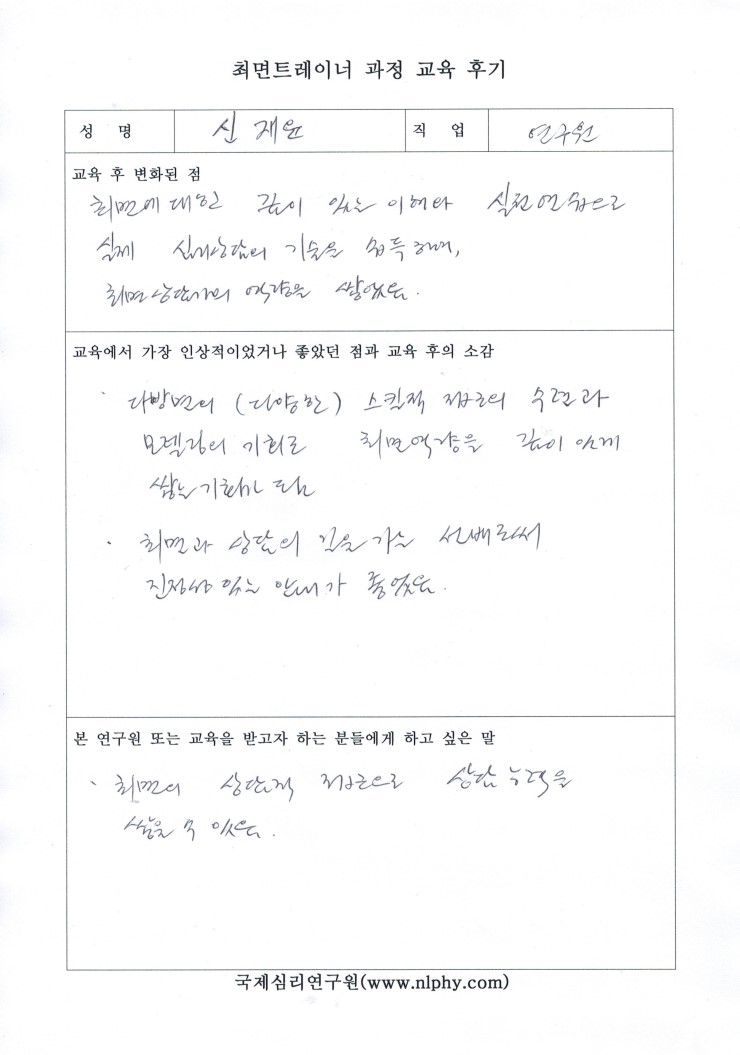 최면트레이너 과정 교육 후기
성 명 신재윤 직 업 연구원
교육 후 변화된 점
최면에 대한 깊이 있는 이해와 실전연습으로
실제 심리상담의 기술을 습득하며,
최면상담가의 역량을 쌓았음.
교육에서 가장 인상적이었거나 좋았던 점과 교육 후의 소감
· 다방면의 (다양한) 스킬적 접근의 수련과
모델링의 기회로 최면역량을 깊이 있게
쌓는 기회가 됨
· 최면과 상담의 길을 가는 선배로써
진정성 있는 안내가 좋았음.
본 연구원 또는 교육을 받고자 하는 분들에게 하고 싶은 말
· 최면의 상담적 접근으로 상담능력을
쌓을 수 있음.
국제심리연구원(www.nlphy.com)